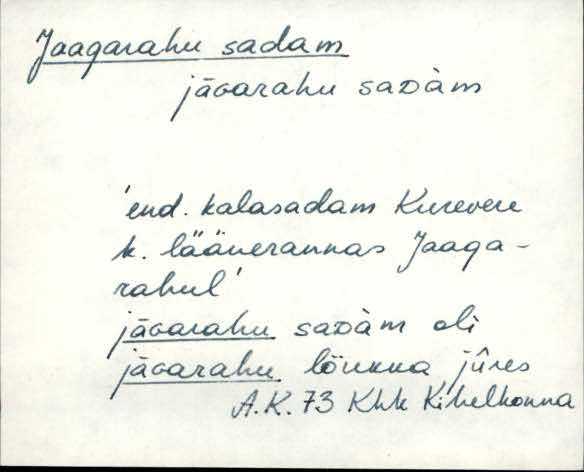 Jaagarahu sadam
jāɢarahu saᴅàm
'end. kalasadam Kurevere
k. läänerannas Jaaga-
rahul'
jāɢarahu saᴅàm oli
jāɢarahu lõukka jûres
A.K. 73 Khk Kihelkonna